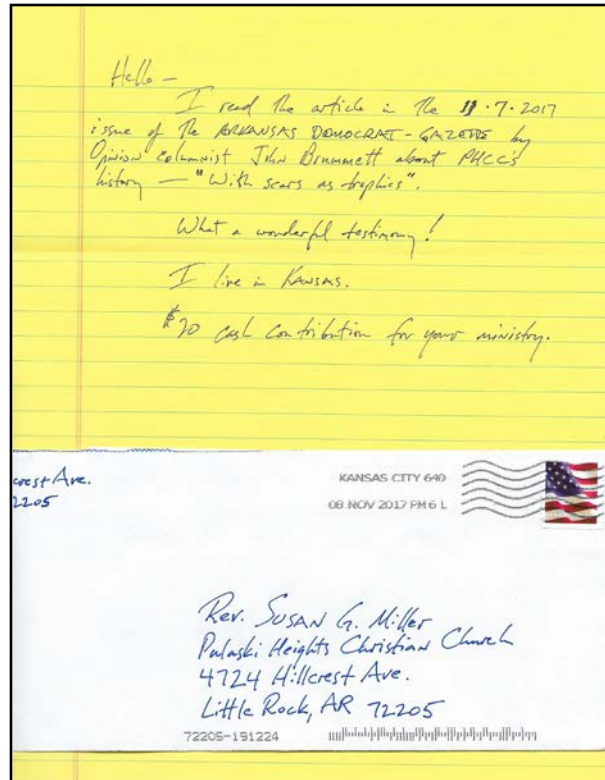 Hello —
I read the article in the 11.7.2017
issue of the ARKANSAS DEMOCRAT-GAZETTE by
Opinion columnist John Brummett about PHCC's
history — "With scars as trophies".
What a wonderful testimony!
I live in Kansas.
$20 cash contribution for your ministry.
crest Ave.
2205
KANSAS CITY 640
08 NOV 2017 PM 6 L
Rev. Susan G. Miller
Pulaski Heights Christian Church
4724 Hillcrest Ave.
Little Rock, AR 72205
72205-191224